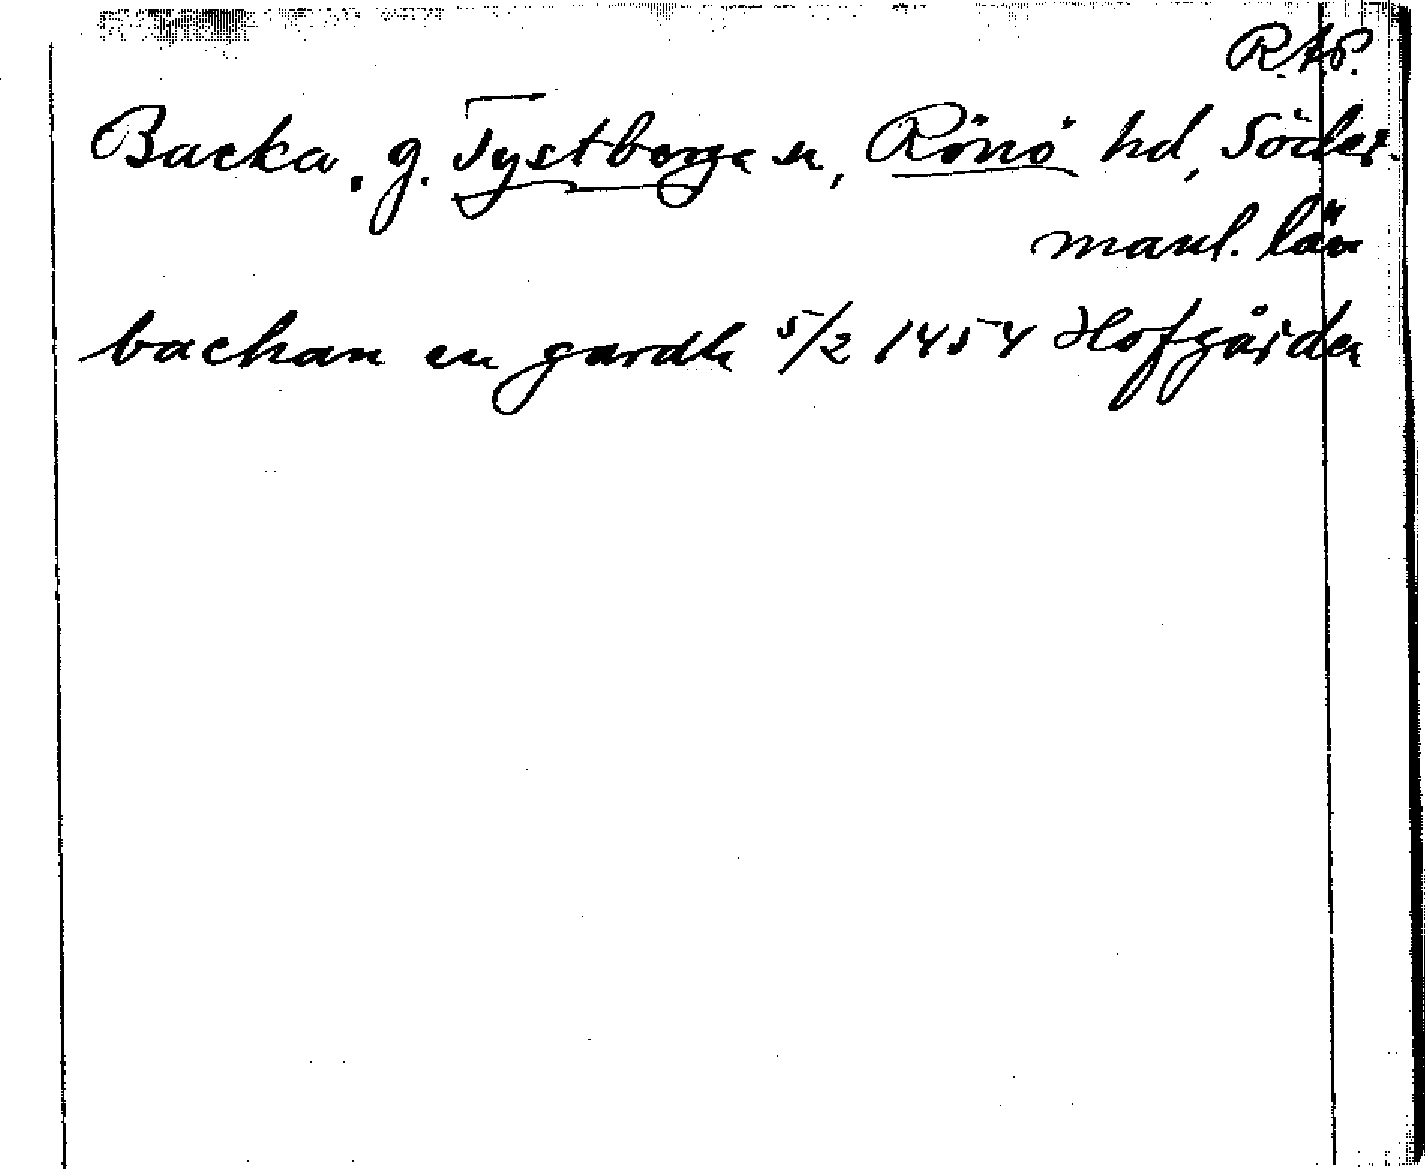 R.A.P.
Backa, g. Tystberga sn, Rönö hd, Söder-
manl. län
backan en gardh 5/2 1454 Hofgården